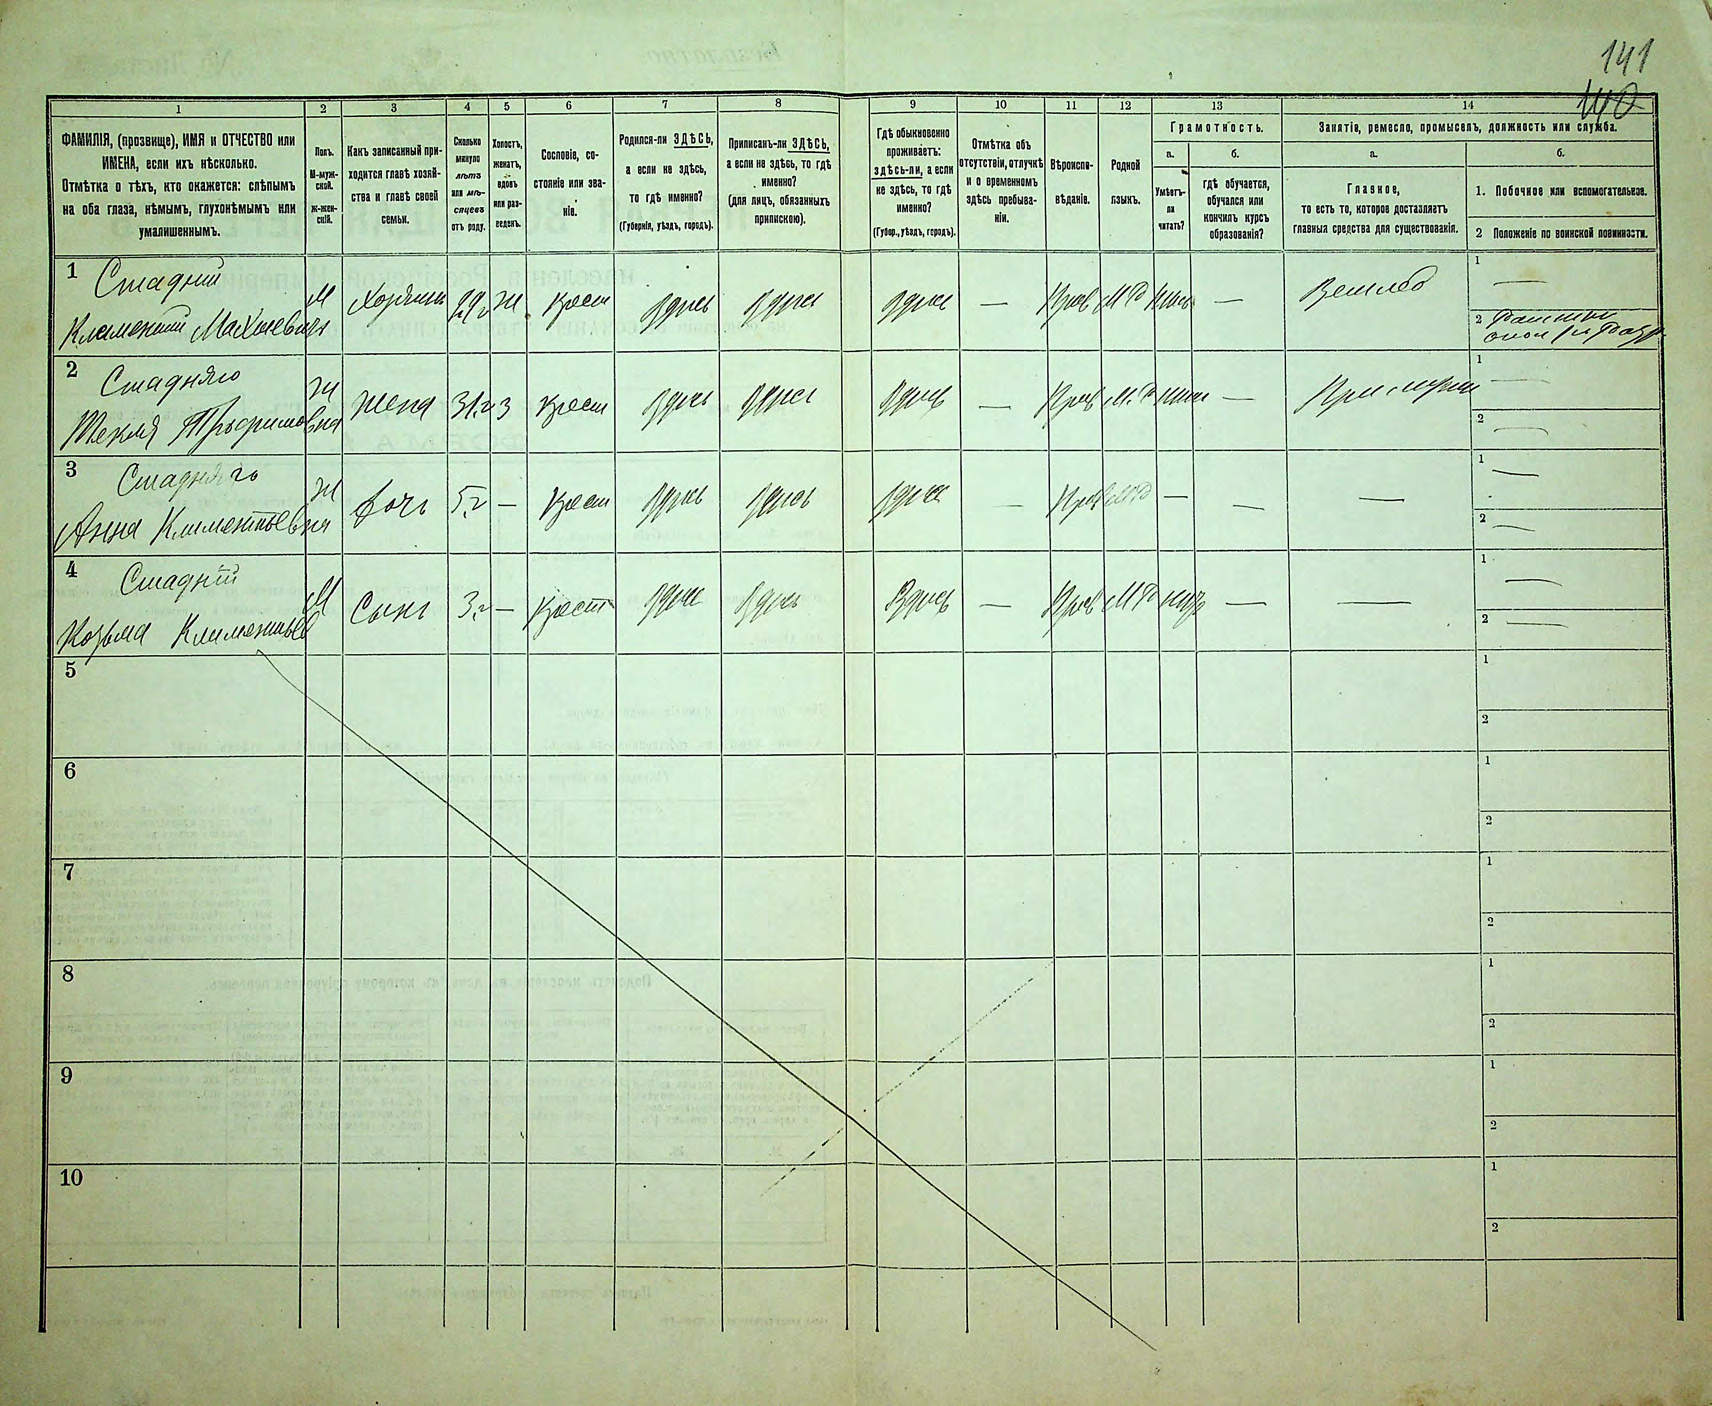 141
140
1 2 3 4 5 6 7 8 9 10 11 12 13 14
ФАМИЛІЯ, (прозвище), ИМЯ и ОТЧЕСТВО или
ИМЕНА, если ихъ нѣсколько.
Отмѣтка о тѣхъ, кто окажется: слѣпымъ
на оба глаза, нѣмымъ, глухонѣмымъ или
умалишеннымъ.
Полъ.
М-муж-
ской.
Ж-жен-
скій.
Какъ записанный при-
ходится главѣ хозяй-
ства и главѣ своей
семьи.
Сколько
минуло
лѣтъ
или мѣ-
сяцевъ
отъ роду.
Холостъ,
женатъ,
вдовъ
или раз-
веденъ.
Сословіе, со-
стояніе или зва-
ніе.
Родился-ли ЗДѢСЬ,
а если не здѣсь,
то гдѣ именно?
(Губернія, уѣздъ, городъ).
Приписанъ-ли ЗДѢСЬ,
а если не здѣсь, то гдѣ
именно?
(для лицъ, обязанныхъ
припискою).
Гдѣ обыкновенно
проживаетъ:
здѣсь-ли, а если
не здѣсь, то гдѣ
именно?
(Губер., уѣздъ, городъ).
Отмѣтка объ
отсутствіи, отлучкѣ
и о временномъ
здѣсь пребыва-
ніи.
Вѣроиспо-
вѣданіе.
Родной
языкъ.
Грамотность.
а.
Умѣетъ-
ли
читать?
б.
гдѣ обучается,
обучался или
кончилъ курсъ
образованія?
Занятіе, ремесло, промыселъ, должность или служба.
а.
Главное,
то есть то, которое доставляетъ
главныя средства для существованія.
б.
1. Побочное или вспомогательное.
2 Положеніе по воинской повинности.
1 Стадній М Хозяинъ 29 г Ж Крест здѣсь здѣсь здѣсь — — 1 —
Климентій 2
2 Стадняго Ж Жена 31 г З Крест здѣсь здѣсь здѣсь — — 1 —
Текля Трофимовна 2 —
3 Стадняго Ж дочь 5 г — Крест здѣсь здѣсь здѣсь — — — — 1 —
Анна Климентьевна 2 —
4 Стадній М Сынъ 3 г — Крест здѣсь здѣсь здѣсь — — — 1 —
Козьма Климентьев 2 —
5 1
2
6 1
2
7 1
2
8 1
2
9 1
2
10 1
2